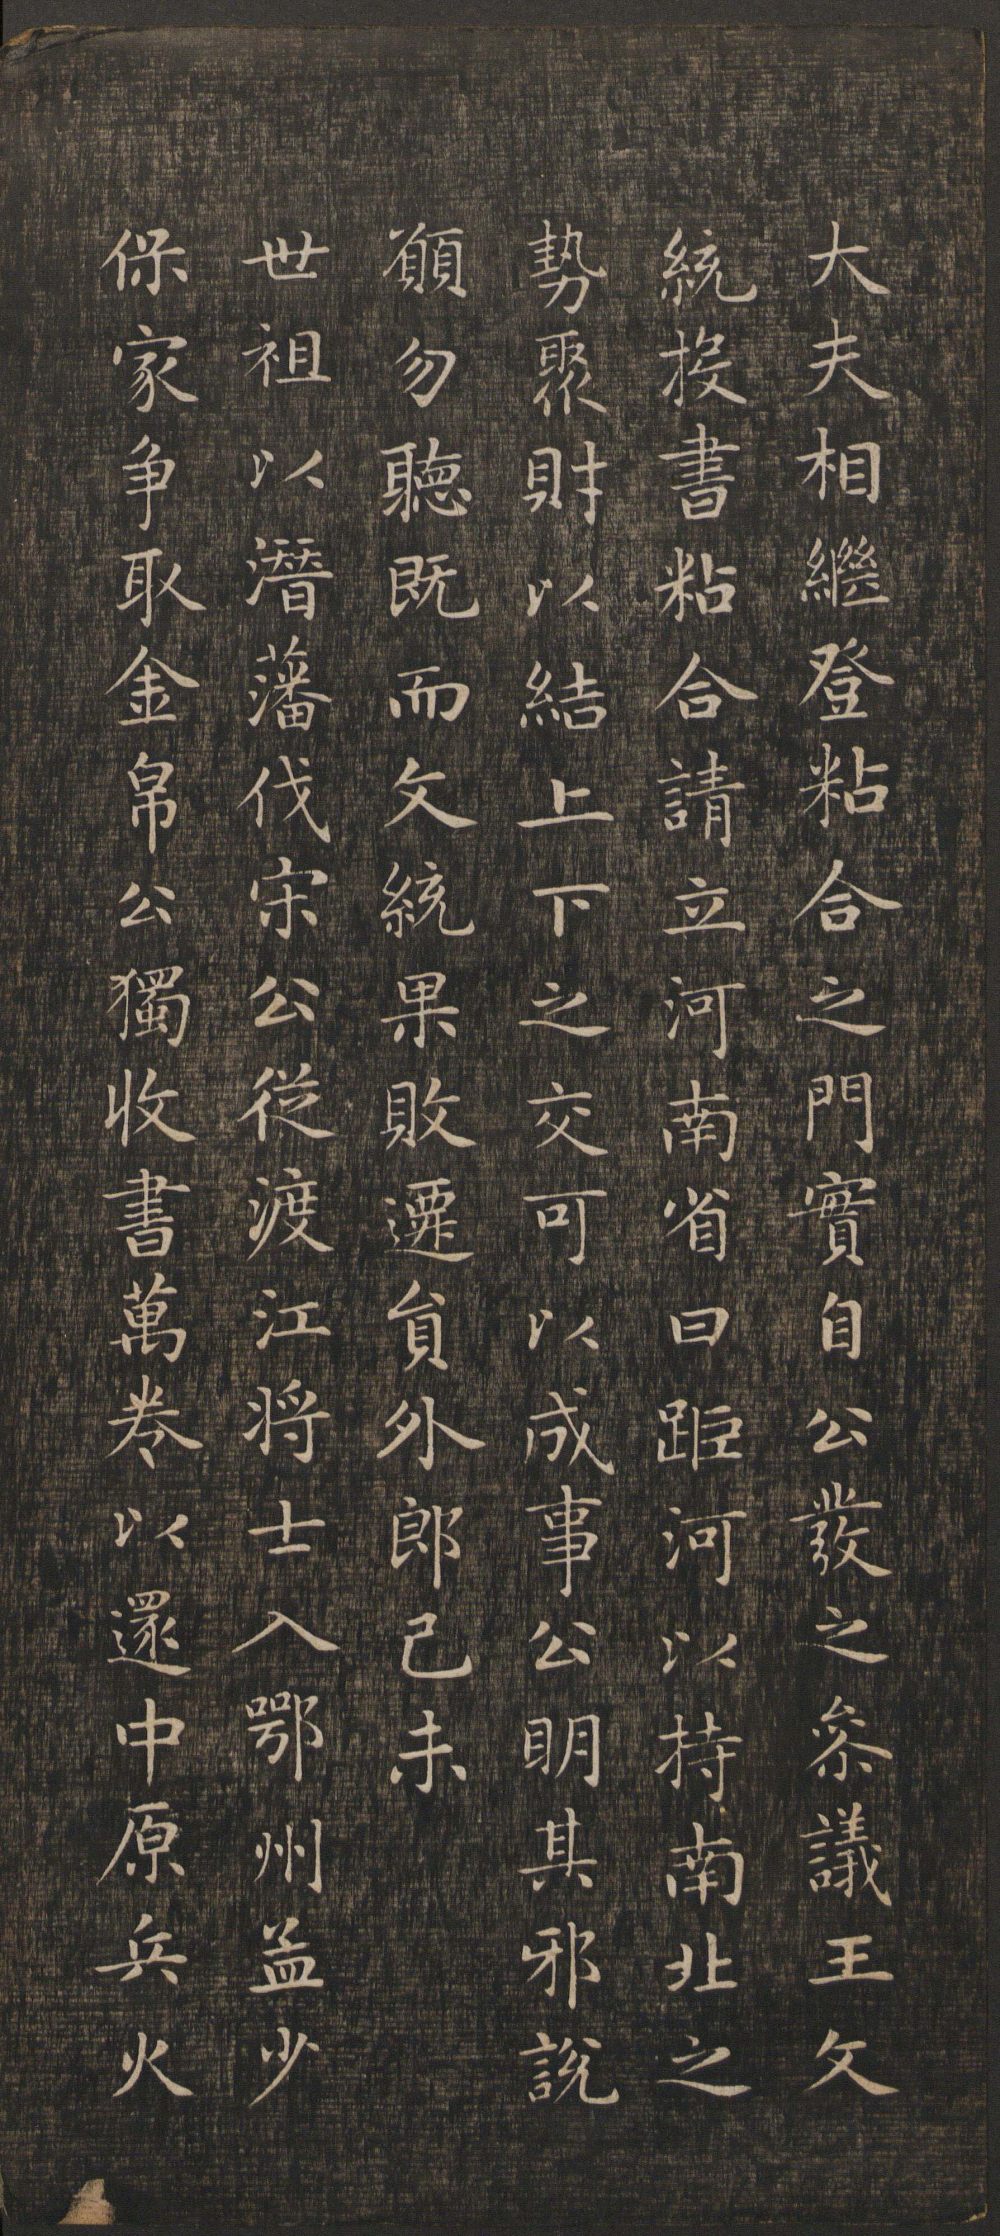 大夫相繼登粘合之門實自公發之叅議王文
統投書粘合請立河南省曰距河以持南北之
勢聚財以結上下之交可以成事公明其邪說
願勿聽既而文統果敗遷貟外郎己未
世祖以潛藩伐宋公從渡江將士入鄂州盖少
保家争取金帛公獨收書萬卷以還中原兵火